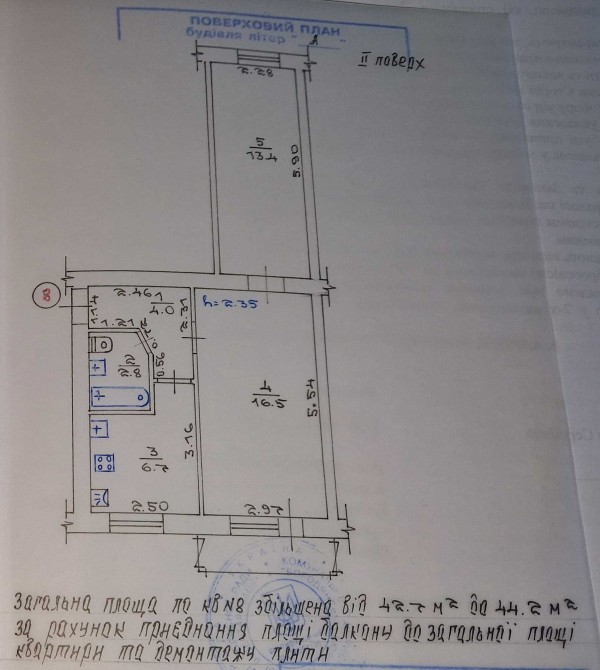 ПОВЕРХОВИЙ ПЛАН
будівля літер "А"
II поверх
2.28
5
13.4
5.90
2.46
1
4.0
1.14
1.21
2.31
h=2.35
0.56
2
2.8
4
16.5
5.54
3
6.7
3.16
2.50
2.97
Загальна площа по кв№8 збільшена від 42.7 м² до 44.2 м²
за рахунок приєднання площі балкону до загальної площі
квартири та демонтажу плити